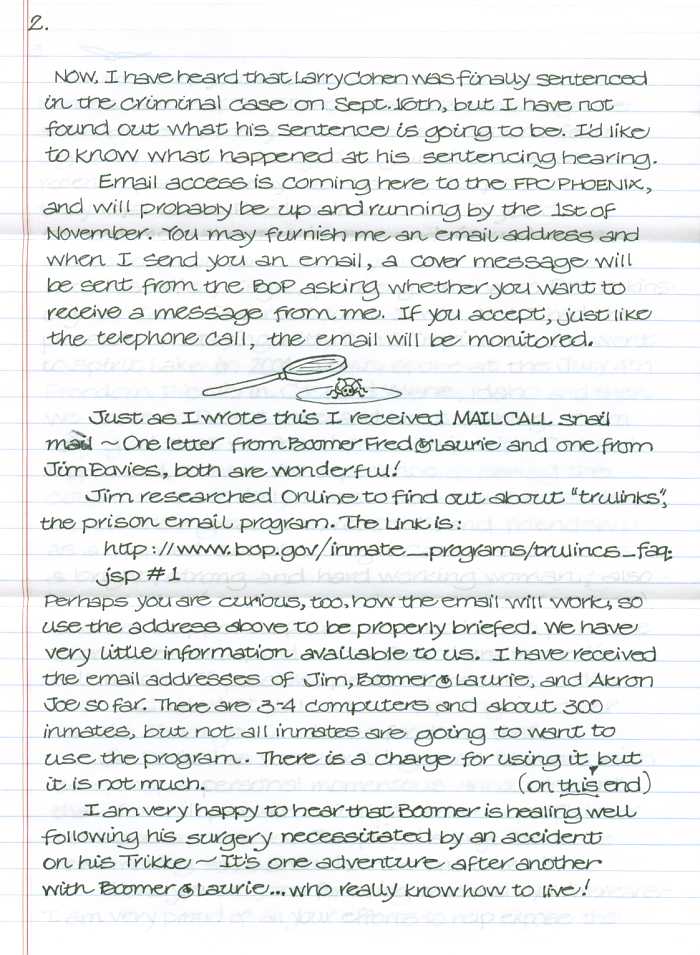 2.
Now, I have heard that Larry Cohen was finally sentenced
in the criminal case on Sept. 16th, but I have not
found out what his sentence is going to be. I'd like
to know what happened at his sentencing hearing.
Email access is coming here to the FPC PHOENIX,
and will probably be up and running by the 1st of
November. You may furnish me an email address and
when I send you an email, a cover message will
be sent from the BOP asking whether you want to
receive a message from me. If you accept, just like
the telephone call, the email will be monitored.
Just as I wrote this I received MAILCALL snail
mail ~ One letter from Boomer Fred & Laurie and one from
Jim Davies, both are wonderful!
Jim researched Online to find out about "trulinks",
the prison email program. The Link is:
http://www.bop.gov/inmate_programs/trulincs_faq.
jsp #1
Perhaps you are curious, too, how the email will work, so
use the address above to be properly briefed. We have
very little information available to us. I have received
the email addresses of Jim, Boomer & Laurie, and Akron
Joe so far. There are 3-4 computers and about 300
inmates, but not all inmates are going to want to
use the program. There is a charge for using it, but
it is not much. (on this end)
I am very happy to hear that Boomer is healing well
following his surgery necessitated by an accident
on his Trikke ~ It's one adventure after another
with Boomer & Laurie... who really know how to live!